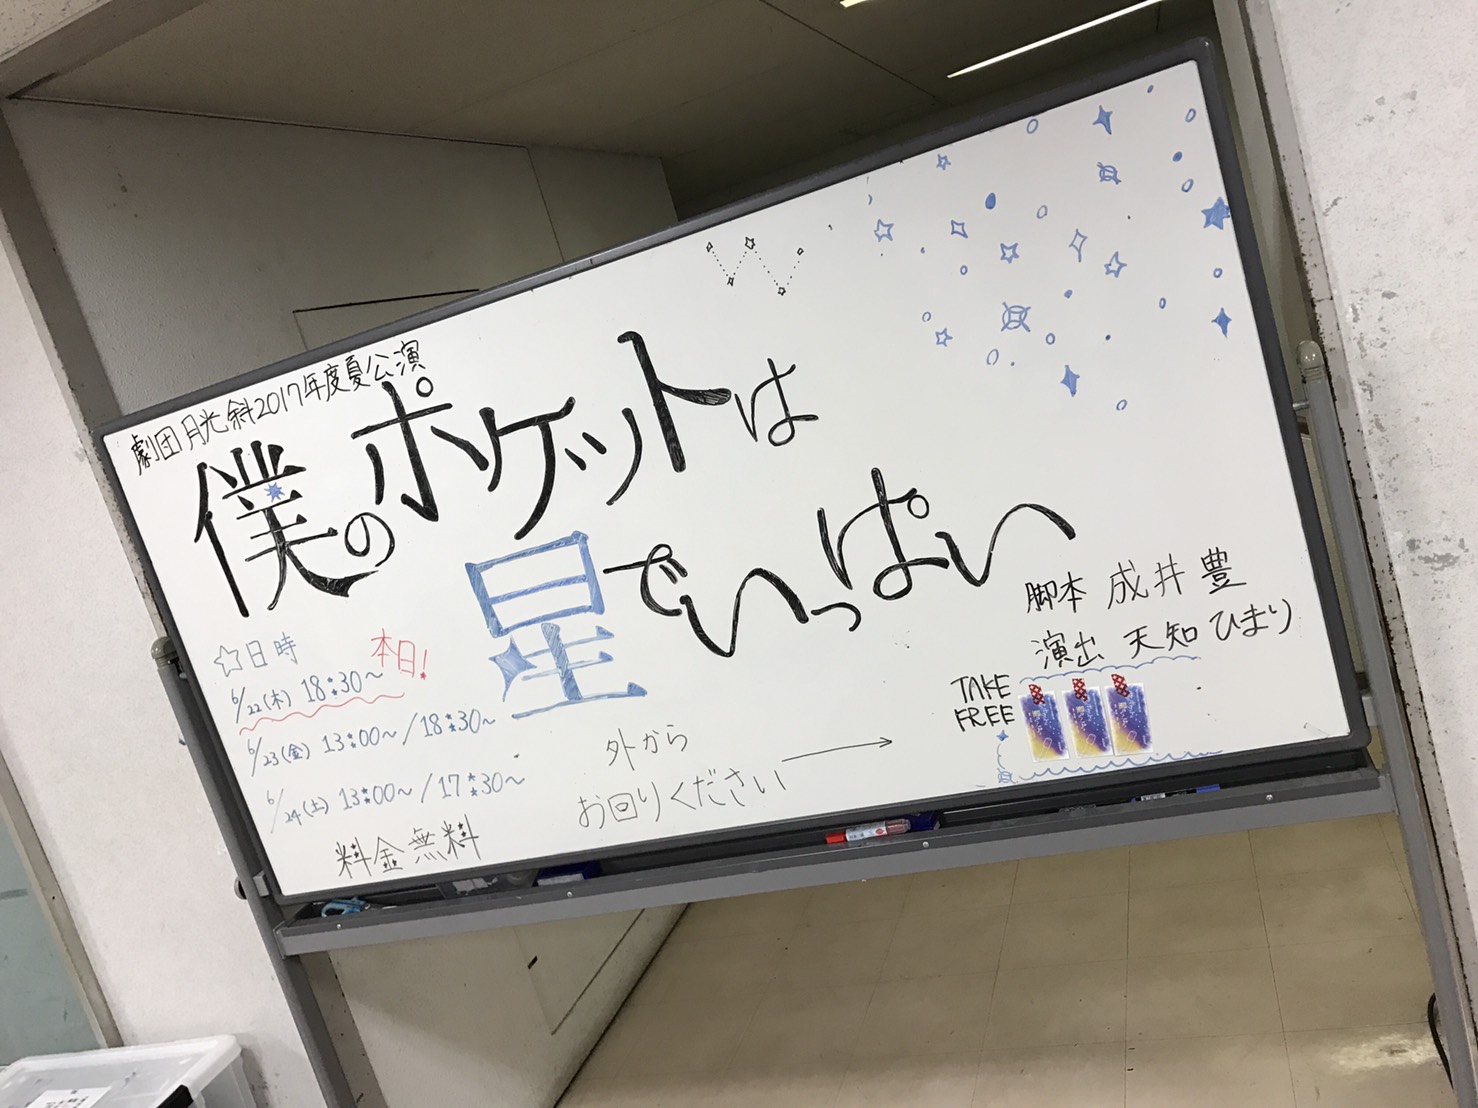 劇団月光斜2017年度夏公演
僕のポケットは
星でいっぱい
脚本 成井豊
演出 天知ひまり
☆日時
本日!
6/22(木) 18:30~
6/23(金) 13:00~/18:30~
6/24(土) 13:00~/17:30~
料金無料
外から
お回りください→
TAKE
FREE